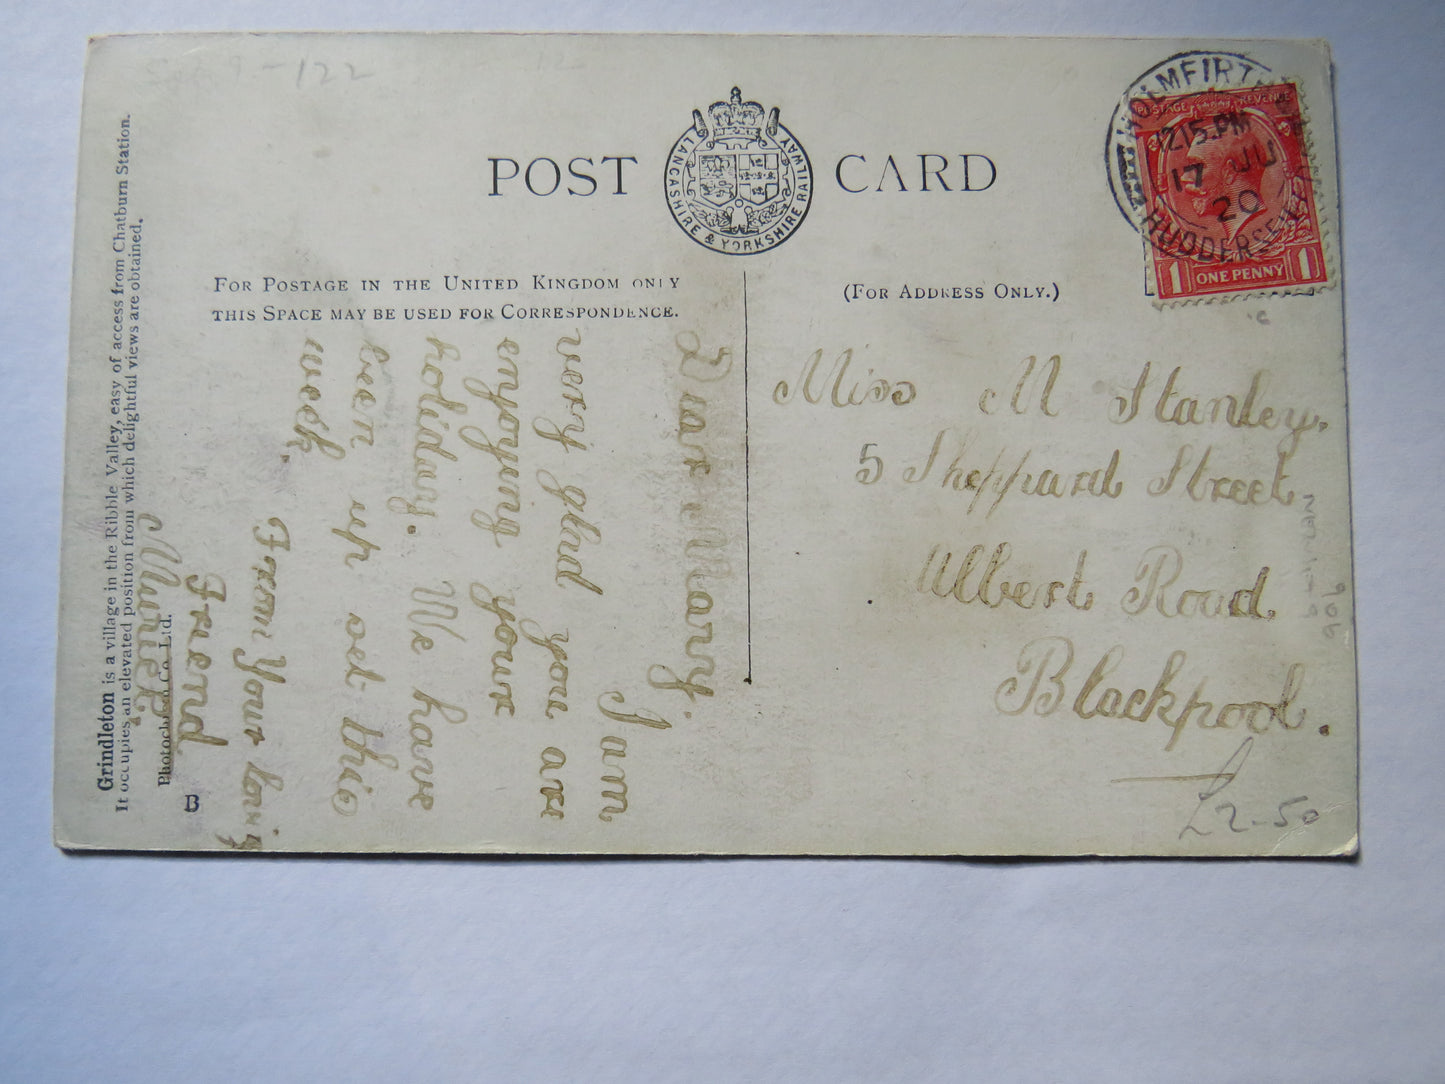 -122
POST CARD
LANCASHIRE & YORKSHIRE RAILWAY
FOR POSTAGE IN THE UNITED KINGDOM ONLY
THIS SPACE MAY BE USED FOR CORRESPONDENCE.
(FOR ADDRESS ONLY.)
HOLMFIRTH
12.15.PM
17 JU
20
HUDDERSFIEL
POSTAGE REVENUE
1 ONE PENNY 1
Dear Mary.
I am
very glad you are
enyoying your
holiday. We have
been up set this
week.
From Your loving
Friend
Muriel.
Miss M Stanley.
5 Sheppard Street
Albert Road
Blackpool.
£2-50
906
Grindleton is a village in the Ribble Valley, easy of access from Chatburn Station.
It occupies an elevated position from which delightful views are obtained.
Photochrom Co. Ltd.
B